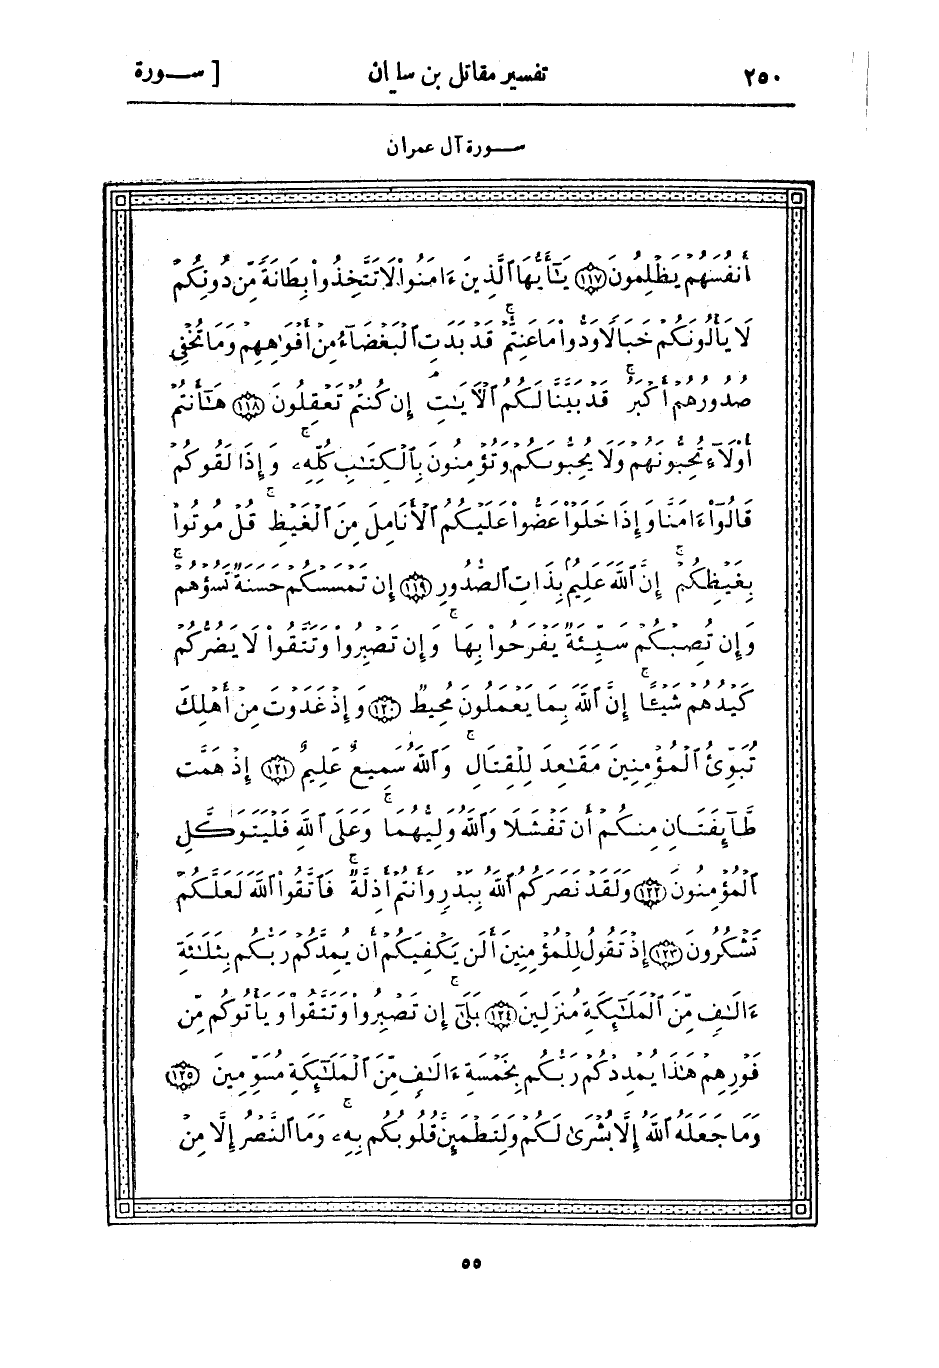 ٢٥٠ تفسير مقاتل بن سليان [ ســورة
ســورة آل عمران
أَنفُسَهُمْ يَظْلِمُونَ ﴿١١٧﴾ يَـٰٓأَيُّهَا ٱلَّذِينَ ءَامَنُوا۟ لَا تَتَّخِذُوا۟ بِطَانَةً مِّن دُونِكُمْ
لَا يَأْلُونَكُمْ خَبَالًا وَدُّوا۟ مَا عَنِتُّمْ ۚ قَدْ بَدَتِ ٱلْبَغْضَآءُ مِنْ أَفْوَٰهِهِمْ وَمَا تُخْفِى
صُدُورُهُمْ أَكْبَرُ ۚ قَدْ بَيَّنَّا لَكُمُ ٱلْـَٔايَـٰتِ ۖ إِن كُنتُمْ تَعْقِلُونَ ﴿١١٨﴾ هَـٰٓأَنتُمْ
أُو۟لَآءِ تُحِبُّونَهُمْ وَلَا يُحِبُّونَكُمْ وَتُؤْمِنُونَ بِٱلْكِتَـٰبِ كُلِّهِۦ ۚ وَإِذَا لَقُوكُمْ
قَالُوٓا۟ ءَامَنَّا وَإِذَا خَلَوْا۟ عَضُّوا۟ عَلَيْكُمُ ٱلْأَنَامِلَ مِنَ ٱلْغَيْظِ ۚ قُلْ مُوتُوا۟
بِغَيْظِكُمْ ۚ إِنَّ ٱللَّهَ عَلِيمٌۢ بِذَاتِ ٱلصُّدُورِ ﴿١١٩﴾ إِن تَمْسَسْكُمْ حَسَنَةٌ تَسُؤْهُمْ ۚ
وَإِن تُصِبْكُمْ سَيِّئَةٌ يَفْرَحُوا۟ بِهَا ۚ وَإِن تَصْبِرُوا۟ وَتَتَّقُوا۟ لَا يَضُرُّكُمْ
كَيْدُهُمْ شَيْـًٔا ۚ إِنَّ ٱللَّهَ بِمَا يَعْمَلُونَ مُحِيطٌ ﴿١٢٠﴾ وَإِذْ غَدَوْتَ مِنْ أَهْلِكَ
تُبَوِّئُ ٱلْمُؤْمِنِينَ مَقَـٰعِدَ لِلْقِتَالِ ۚ وَٱللَّهُ سَمِيعٌ عَلِيمٌ ﴿١٢١﴾ إِذْ هَمَّت
طَّآئِفَتَـانِ مِنكُمْ أَن تَفْشَلَا وَٱللَّهُ وَلِيُّهُمَا ۚ وَعَلَى ٱللَّهِ فَلْيَتَوَكَّلِ
ٱلْمُؤْمِنُونَ ﴿١٢٢﴾ وَلَقَدْ نَصَرَكُمُ ٱللَّهُ بِبَدْرٍ وَأَنتُمْ أَذِلَّةٌ ۚ فَٱتَّقُوا۟ ٱللَّهَ لَعَلَّكُمْ
تَشْكُرُونَ ﴿١٢٣﴾ إِذْ تَقُولُ لِلْمُؤْمِنِينَ أَلَن يَكْفِيَكُمْ أَن يُمِدَّكُمْ رَبُّكُم بِثَلَـٰثَةِ
ءَالَـٰفٍ مِّنَ ٱلْمَلَـٰٓئِكَةِ مُنزَلِينَ ﴿١٢٤﴾ بَلَىٰٓ ۚ إِن تَصْبِرُوا۟ وَتَتَّقُوا۟ وَيَأْتُوكُم مِّن
فَوْرِهِمْ هَـٰذَا يُمْدِدْكُمْ رَبُّكُم بِخَمْسَةِ ءَالَـٰفٍ مِّنَ ٱلْمَلَـٰٓئِكَةِ مُسَوِّمِينَ ﴿١٢٥﴾
وَمَا جَعَلَهُ ٱللَّهُ إِلَّا بُشْرَىٰ لَكُمْ وَلِتَطْمَئِنَّ قُلُوبُكُم بِهِۦ ۚ وَمَا ٱلنَّصْرُ إِلَّا مِنْ
٥٥